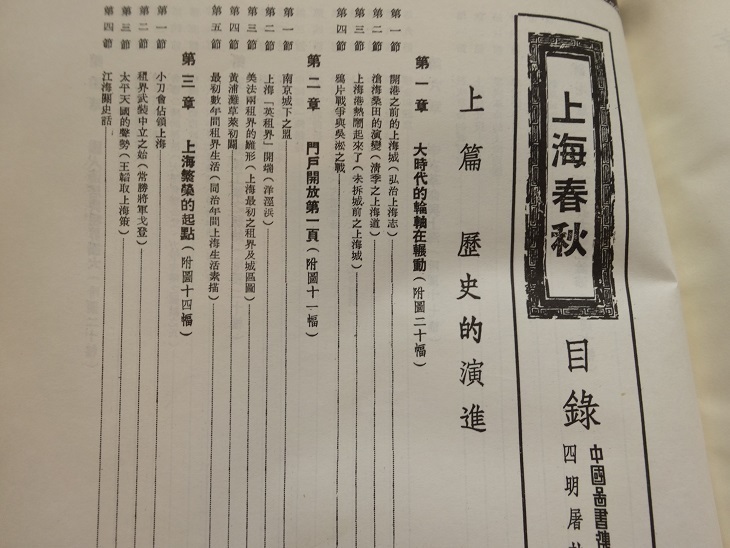 上海春秋
目錄
中國圖書
四明屠
上篇 歷史的演進
第一章 大時代的輪軸在輾動(附圖二十幅)
第一節 開港之前的上海城(弘治上海志)
第二節 滄海桑田的演變(清季之上海道)
第三節 上海港熱鬧起來了(未拆城前之上海城)
第四節 鴉片戰爭與吳淞之戰
第二章 門戶開放第一頁(附圖十一幅)
第一節 南京城下之盟
第二節 上海「英租界」開端(洋涇浜)
第三節 美法兩租界的雛形(上海最初之租界及城區圖)
第四節 黃浦灘草萊初闢
第五節 最初數年間租界生活(同治年間上海生活素描)
第三章 上海繁榮的起點(附圖十四幅)
第一節 小刀會佔領上海
第二節 租界武裝中立之始(常勝將軍戈登)
第三節 太平天國的聲勢(王韜取上海策)
第四節 江海關史話